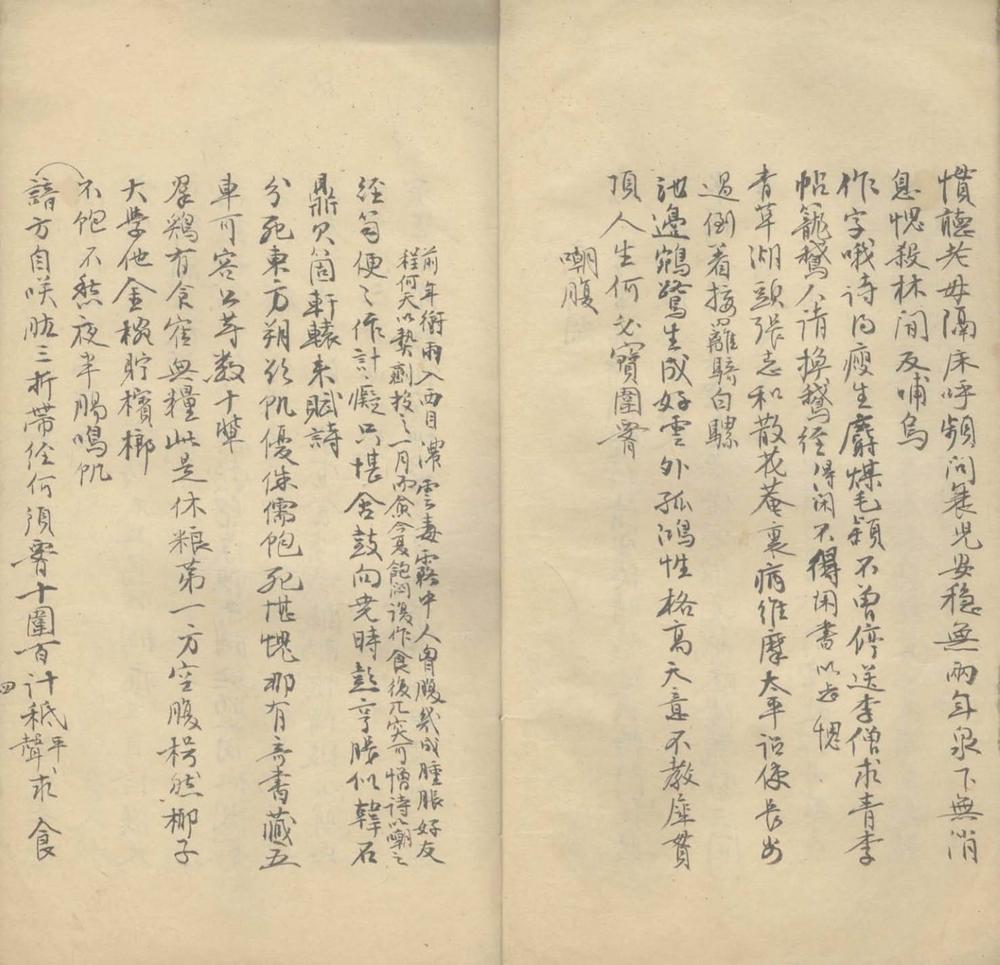 慣聽老母隔床呼頻問衰兒安穩無兩年泉下無消
息愧殺林間反哺烏
作字哦詩乃瘦生麝煤毛穎不曾停送李僧求青李
帖籠鵝人請換鵝經得閑不得閑書以志愧
青草湖頭張志和散花菴裏病維摩太平詔使長安
過倒着接䍦騎白騾
池邊鵷鷺生成好雲外孤鴻性格高天意不教犀貫
頂人生何必寶圍腰
嘲腹
前年銜雨入西目濃雲毒霧中人胃腹幾成腫脹好友
程何天以藥劑投之一月而痊今夏飽悶復作食後兀突可憎詩以嘲之
經笥便便作計癡只堪含鼓向堯時熱亨脹似韓石
鼎欠箇軒轅來賦詩
分死東方朔欲飢優侏儒飽死堪愧那有奇書藏五
車可容公等數十輩
群鷄有食宿無糧此是休粮第一方空腹枵然椰子
大學他金椀貯檳榔
不飽不愁夜半腸鳴飢
諳方自咲肱三折帶经何須腰十圍百計秖平聲求食
四